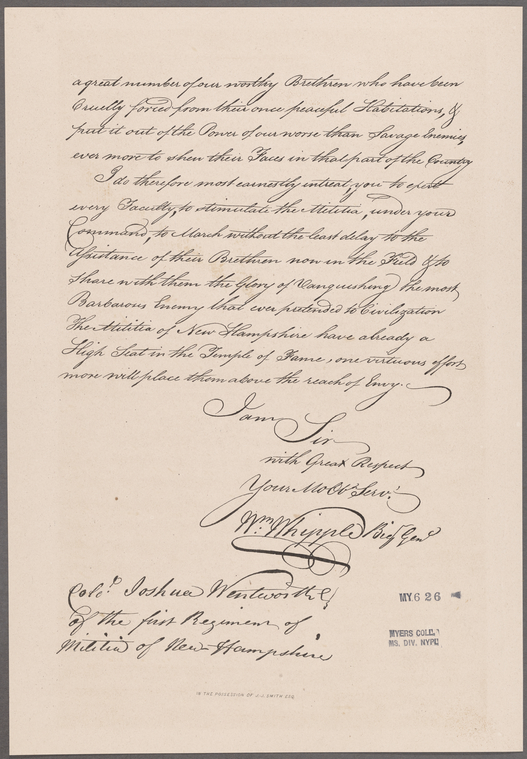 a great number of our worthy Brethren who have been
Cruelly forced from their once peaceful Habitations, &
put it out of the Power of our worse than Savage Enemies,
ever more to shew their Faces in that part of the Country
I do therefore most earnestly intreat, you to exert
every Faculty, to stimulate the Militia, under your
Command, to March without the least delay to the
Assistance of their Brethren now in the Field & to
share with them the Glory of Vanquishing the most
Barbarous Enemy that ever pretended to Civilization
The Militia of New Hampshire have already a
High Seat in the Temple of Fame, one virtuous effort
more will place them above the reach of Envy.
I am
Sir
with Great Respect
Your Mo Obt Servt
Wm Whipple Bigr Genl
Colo. Joshua Wentworth
of the first Regiment of
Militia of New-Hampshire
MY.626
MYERS COLL.
MS. DIV. NYPL
IN THE POSSESSION OF J.J. SMITH ESQ.